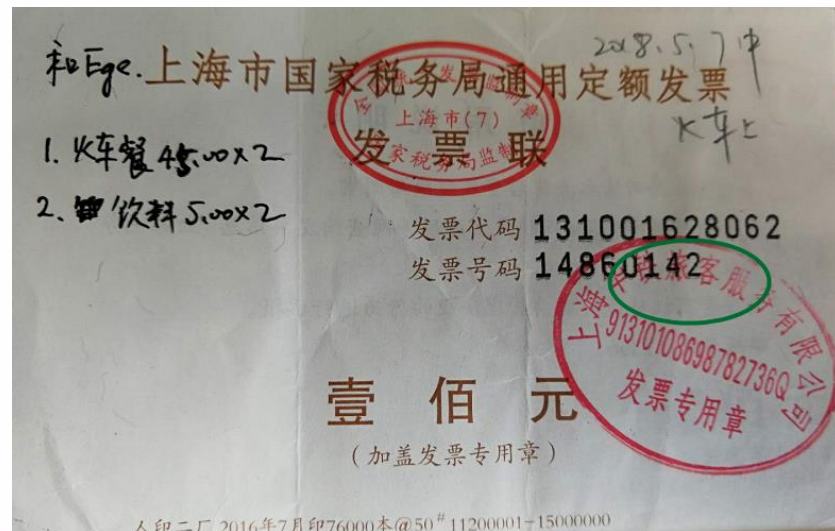 和Ege.
2018.5.7中
火车上
上海市国家税务局通用定额发票
上海市(7)
国家税务局监制
发票联
1. 火车餐 45.00×2
2. 饮料 5.00×2
发票代码 131001628062
发票号码 14860142
上海华铁旅客服务有限公司
91310108698782736Q
发票专用章
壹佰元
(加盖发票专用章)
人印二厂 2016年7月印76000本@50# 11200001-15000000